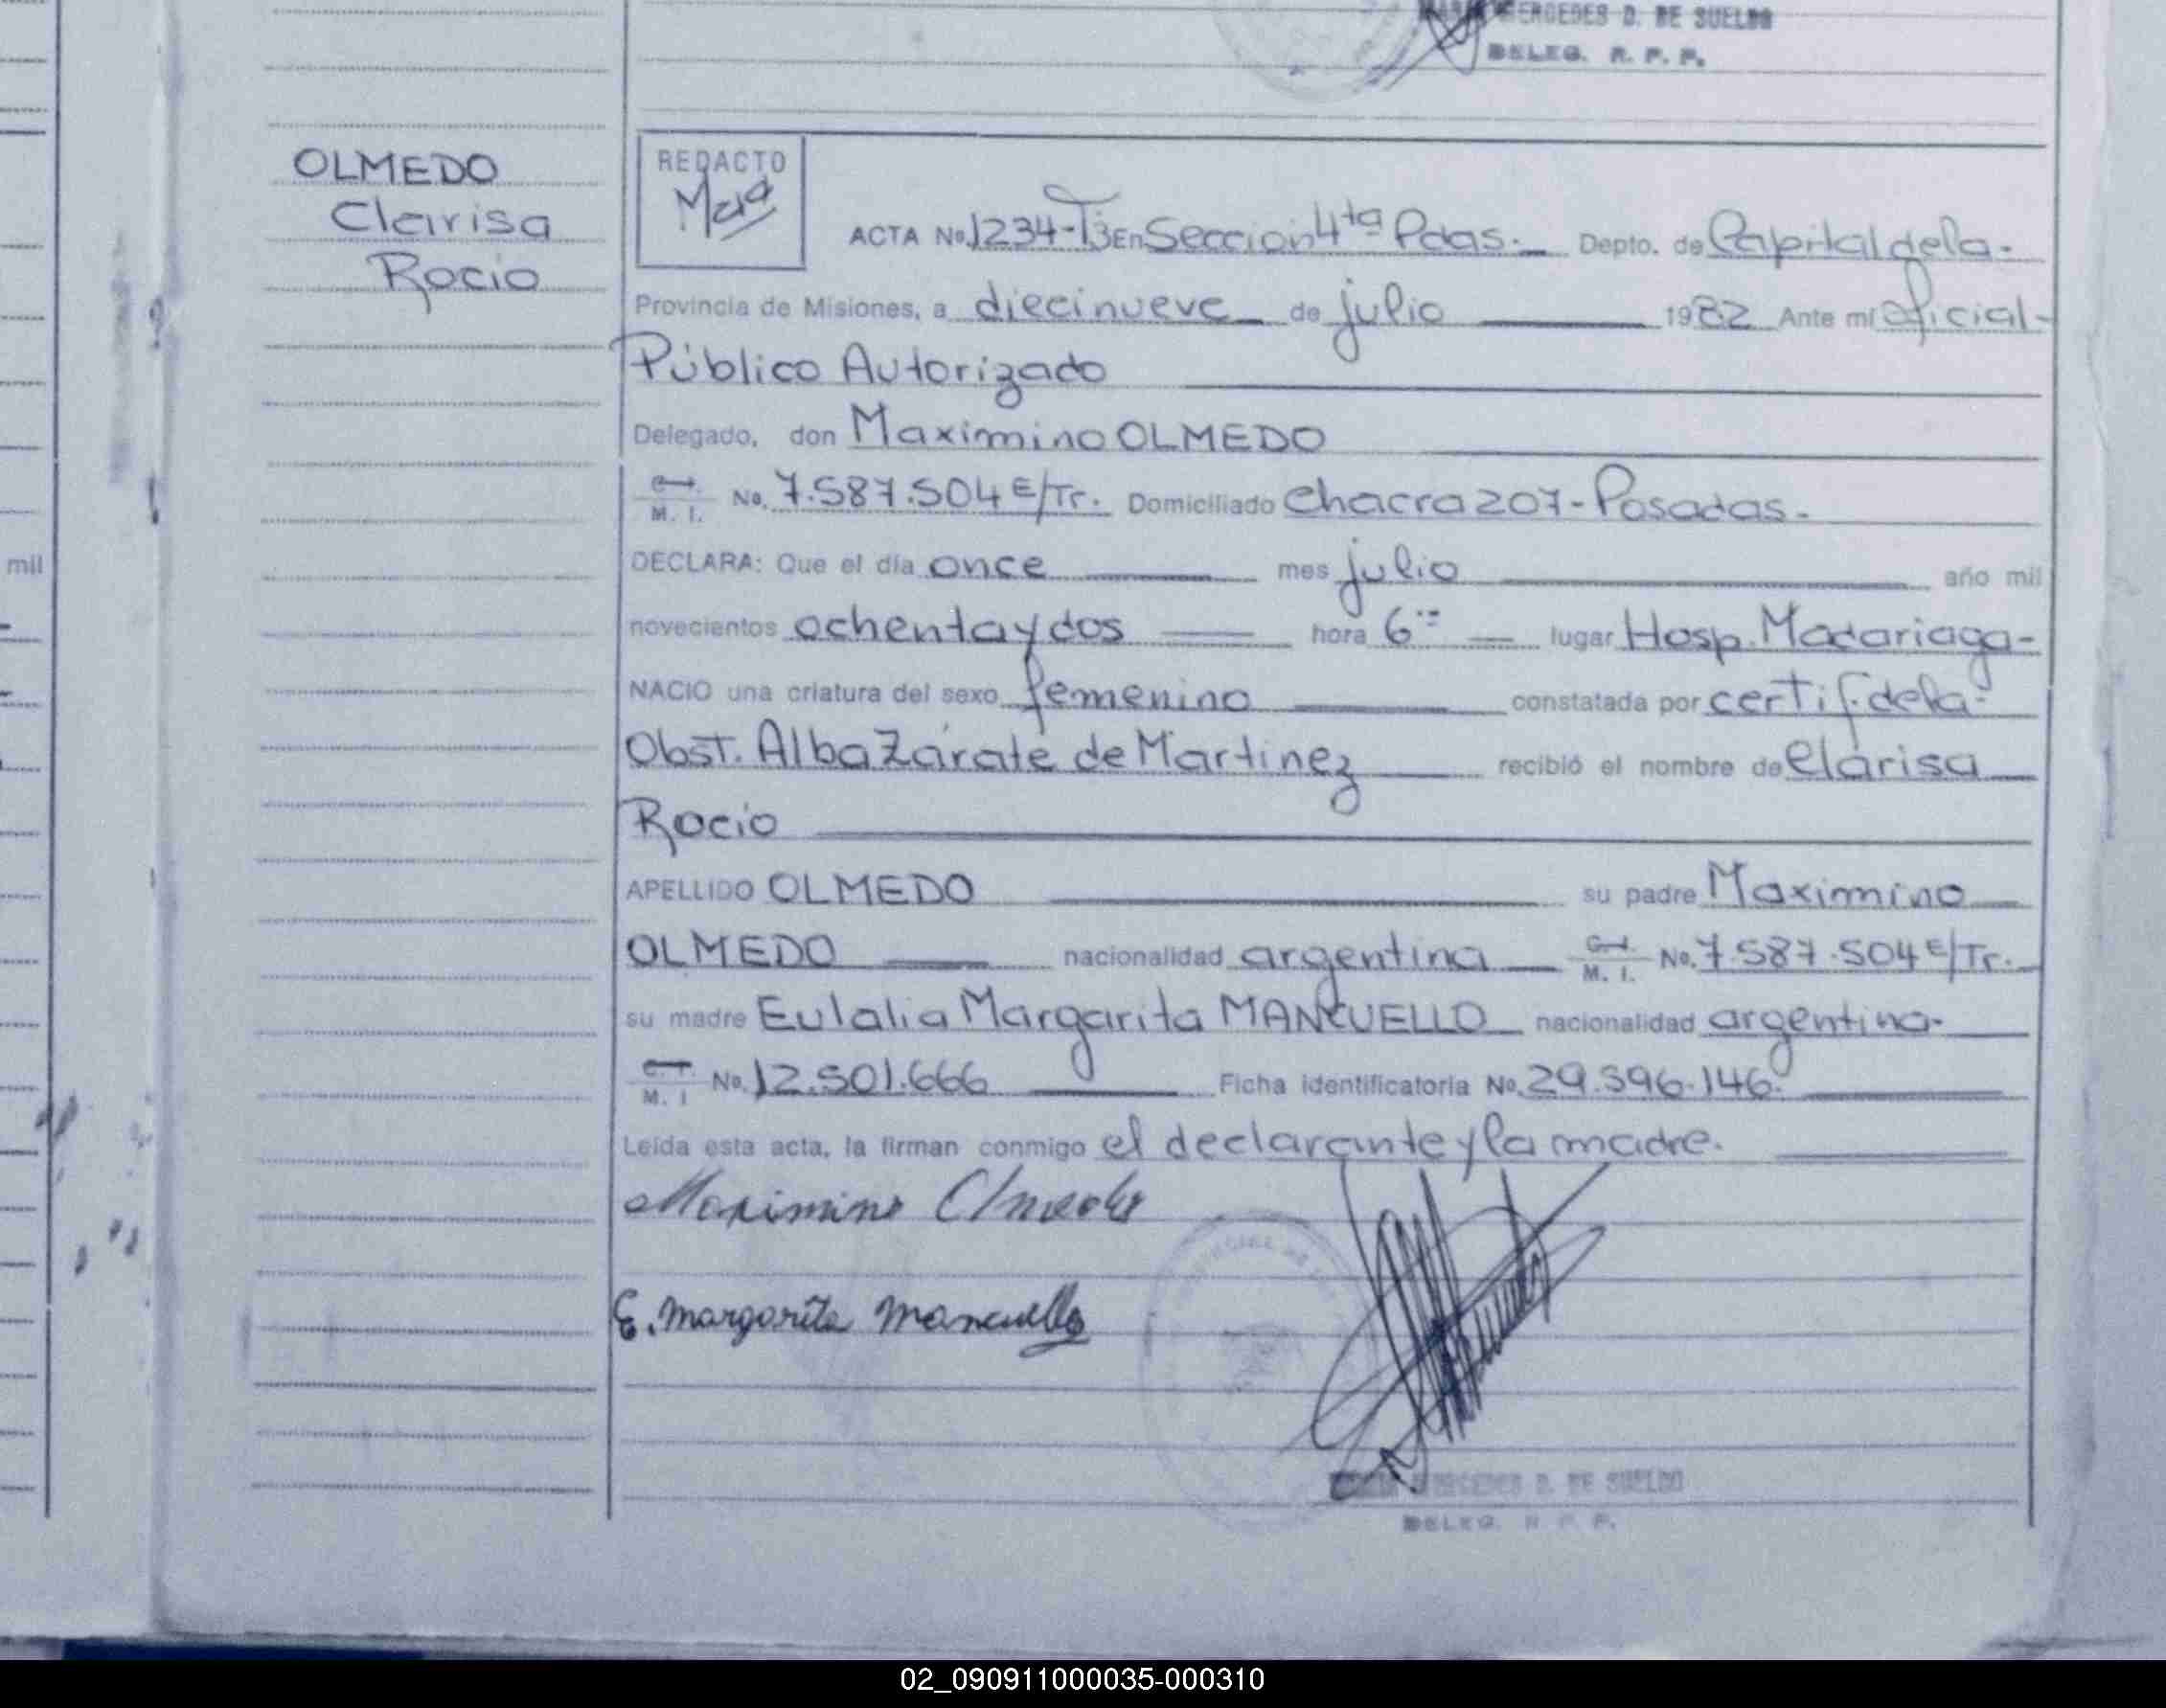 MERCEDES D. DE SUELDO
DELEG. R. P. P.
OLMEDO
Clarisa
Rocio
REDACTO
ACTA No. 1234-T3 En Sección 4ta Pdas.- Depto. de Capital de la-
Provincia de Misiones, a diecinueve de julio 1982 Ante mí Oficial-
Público Autorizado
Delegado, don Maximino OLMEDO
M. I. No. 7.587.504 E/Tr. Domiciliado Chacra 207-Posadas.-
mil
DECLARA: Que el día once mes julio año mil
novecientos ochenta y dos hora 6 lugar Hosp. Madariaga-
NACIO una criatura del sexo femenino constatada por certif. de la-
Obst. Alba Zárate de Martinez recibió el nombre de Clarisa
Rocio
APELLIDO OLMEDO su padre Maximino
OLMEDO nacionalidad argentina M. I. No. 7.587.504 E/Tr.
su madre Eulalia Margarita MANCUELLO nacionalidad argentina-
M. I No. 12.501.666 Ficha identificatoria No. 29.396.146.
Leída esta acta, la firman conmigo el declarante y la madre.
Maximino Olmedo
E. Margarita Mancuello
MERCEDES D. DE SUELDO
DELEG. R. P. P.
02_090911000035-000310